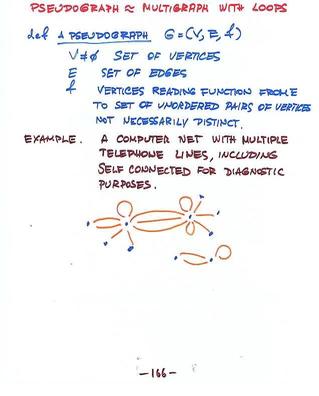 PSEUDOGRAPH ≈ MULTIGRAPH WITH LOOPS
def A PSEUDOGRAPH G=(V, E, f)
V≠∅ SET OF VERTICES
E SET OF EDGES
f VERTICES READING FUNCTION FROM E
TO SET OF UNORDERED PAIRS OF VERTICES
NOT NECESSARILY DISTINCT.
EXAMPLE. A COMPUTER NET WITH MULTIPLE
TELEPHONE LINES, INCLUDING
SELF CONNECTED FOR DIAGNOSTIC
PURPOSES.
—166—